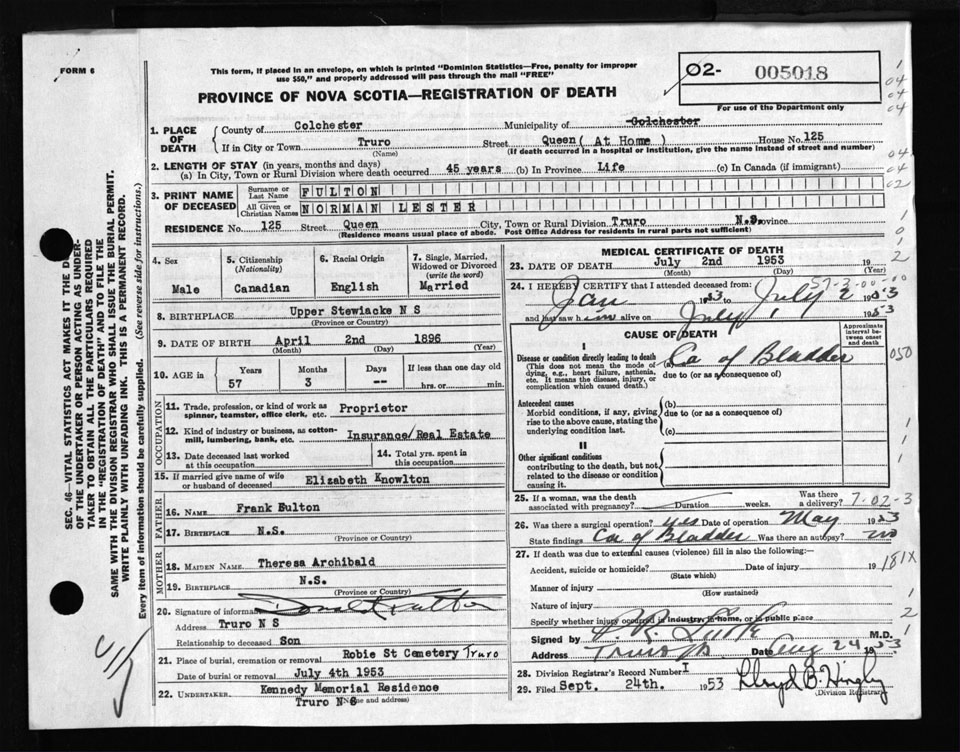 FORM 6
This form, if placed in an envelope, on which is printed "Dominion Statistics—Free, penalty for improper
use $50," and properly addressed will pass through the mail "FREE"
02- 005018
PROVINCE OF NOVA SCOTIA—REGISTRATION OF DEATH
For use of the Department only
1. PLACE OF DEATH
County of Colchester Municipality of Colchester
If in City or Town Truro Street Queen( At Home ) House No. 125
(Name) (If death occurred in a hospital or institution, give the name instead of street and number)
2. LENGTH OF STAY (in years, months and days)
(a) In City, Town or Rural Division where death occurred 45 years (b) In Province Life (c) In Canada (if immigrant)
3. PRINT NAME OF DECEASED
Surname or Last Name FULTON
All Given or Christian Names NORMAN LESTER
RESIDENCE No. 125 Street Queen City, Town or Rural Division Truro N.S. Province
(Residence means usual place of abode. Post Office Address for residents in rural parts not sufficient)
4. Sex
Male
5. Citizenship
(Nationality)
Canadian
6. Racial Origin
English
7. Single, Married,
Widowed or Divorced
(write the word)
Married
8. BIRTHPLACE Upper Stewiacke N S
(Province or Country)
9. DATE OF BIRTH April 2nd 1896
(Month) (Day) (Year)
10. AGE in Years Months Days If less than one day old
57 3 -- hrs. or min.
OCCUPATION
11. Trade, profession, or kind of work as
spinner, teamster, office clerk, etc. Proprietor
12. Kind of industry or business, as cotton-
mill, lumbering, bank, etc. Insurance/Real Estate
13. Date deceased last worked
at this occupation
14. Total yrs. spent in
this occupation
15. If married give name of wife
or husband of deceased Elizabeth Knowlton
FATHER
16. Name Frank Bulton
17. Birthplace N.S.
(Province or Country)
MOTHER
18. Maiden Name Theresa Archibald
19. Birthplace N.S.
(Province or Country)
20. Signature of informant Donald Fulton
Address Truro N S
Relationship to deceased Son
21. Place of burial, cremation or removal Robie St Cemetery Truro
Date of burial or removal July 4th 1953
22. Undertaker Kennedy Memorial Residence
Truro N S (Name and address)
MEDICAL CERTIFICATE OF DEATH
23. DATE OF DEATH July 2nd 1953 19
(Month) (Day) (Year)
24. I HEREBY CERTIFY that I attended deceased from:
Jan 1953 to July 2 1953
and last saw him alive on July 1 1953
CAUSE OF DEATH
Approximate interval between onset and death
I
Disease or condition directly leading to death
(This does not mean the mode of
dying, e.g., heart failure, asthenia,
etc. It means the disease, injury, or
complication which caused death.)
(a) Ca of Bladder
due to (or as a consequence of)
Antecedent causes
Morbid conditions, if any, giving
rise to the above cause, stating the
underlying condition last.
(b)
due to (or as a consequence of)
(c)
II
Other significant conditions
contributing to the death, but not
related to the disease or condition
causing it.
25. If a woman, was the death
associated with pregnancy? Duration weeks. Was there a delivery?
7-02-3
26. Was there a surgical operation? yes Date of operation May 1953
State findings Ca of Bladder Was there an autopsy? no
27. If death was due to external causes (violence) fill in also the following:—
Accident, suicide or homicide? Date of injury 19
(State which)
181X
Manner of injury
(How sustained)
Nature of injury
Specify whether injury occurred in industry, in home, or in public place
Signed by M.D.
Address Truro NS Date Aug 24 1953
28. Division Registrar's Record Number
29. Filed Sept. 24th. 1953 Lloyd B. Hingley
(Division Registrar)
SEC. 46—VITAL STATISTICS ACT MAKES IT THE D
OF THE UNDERTAKER OR PERSON ACTING AS UNDER-
TAKER TO OBTAIN ALL THE PARTICULARS REQUIRED
IN THE "REGISTRATION OF DEATH" AND TO FILE THE
SAME WITH THE DIVISION REGISTRAR WHO SHALL ISSUE THE BURIAL PERMIT.
WRITE PLAINLY WITH UNFADING INK. THIS IS A PERMANENT RECORD.
Every item of information should be carefully supplied. (See reverse side for instructions.)